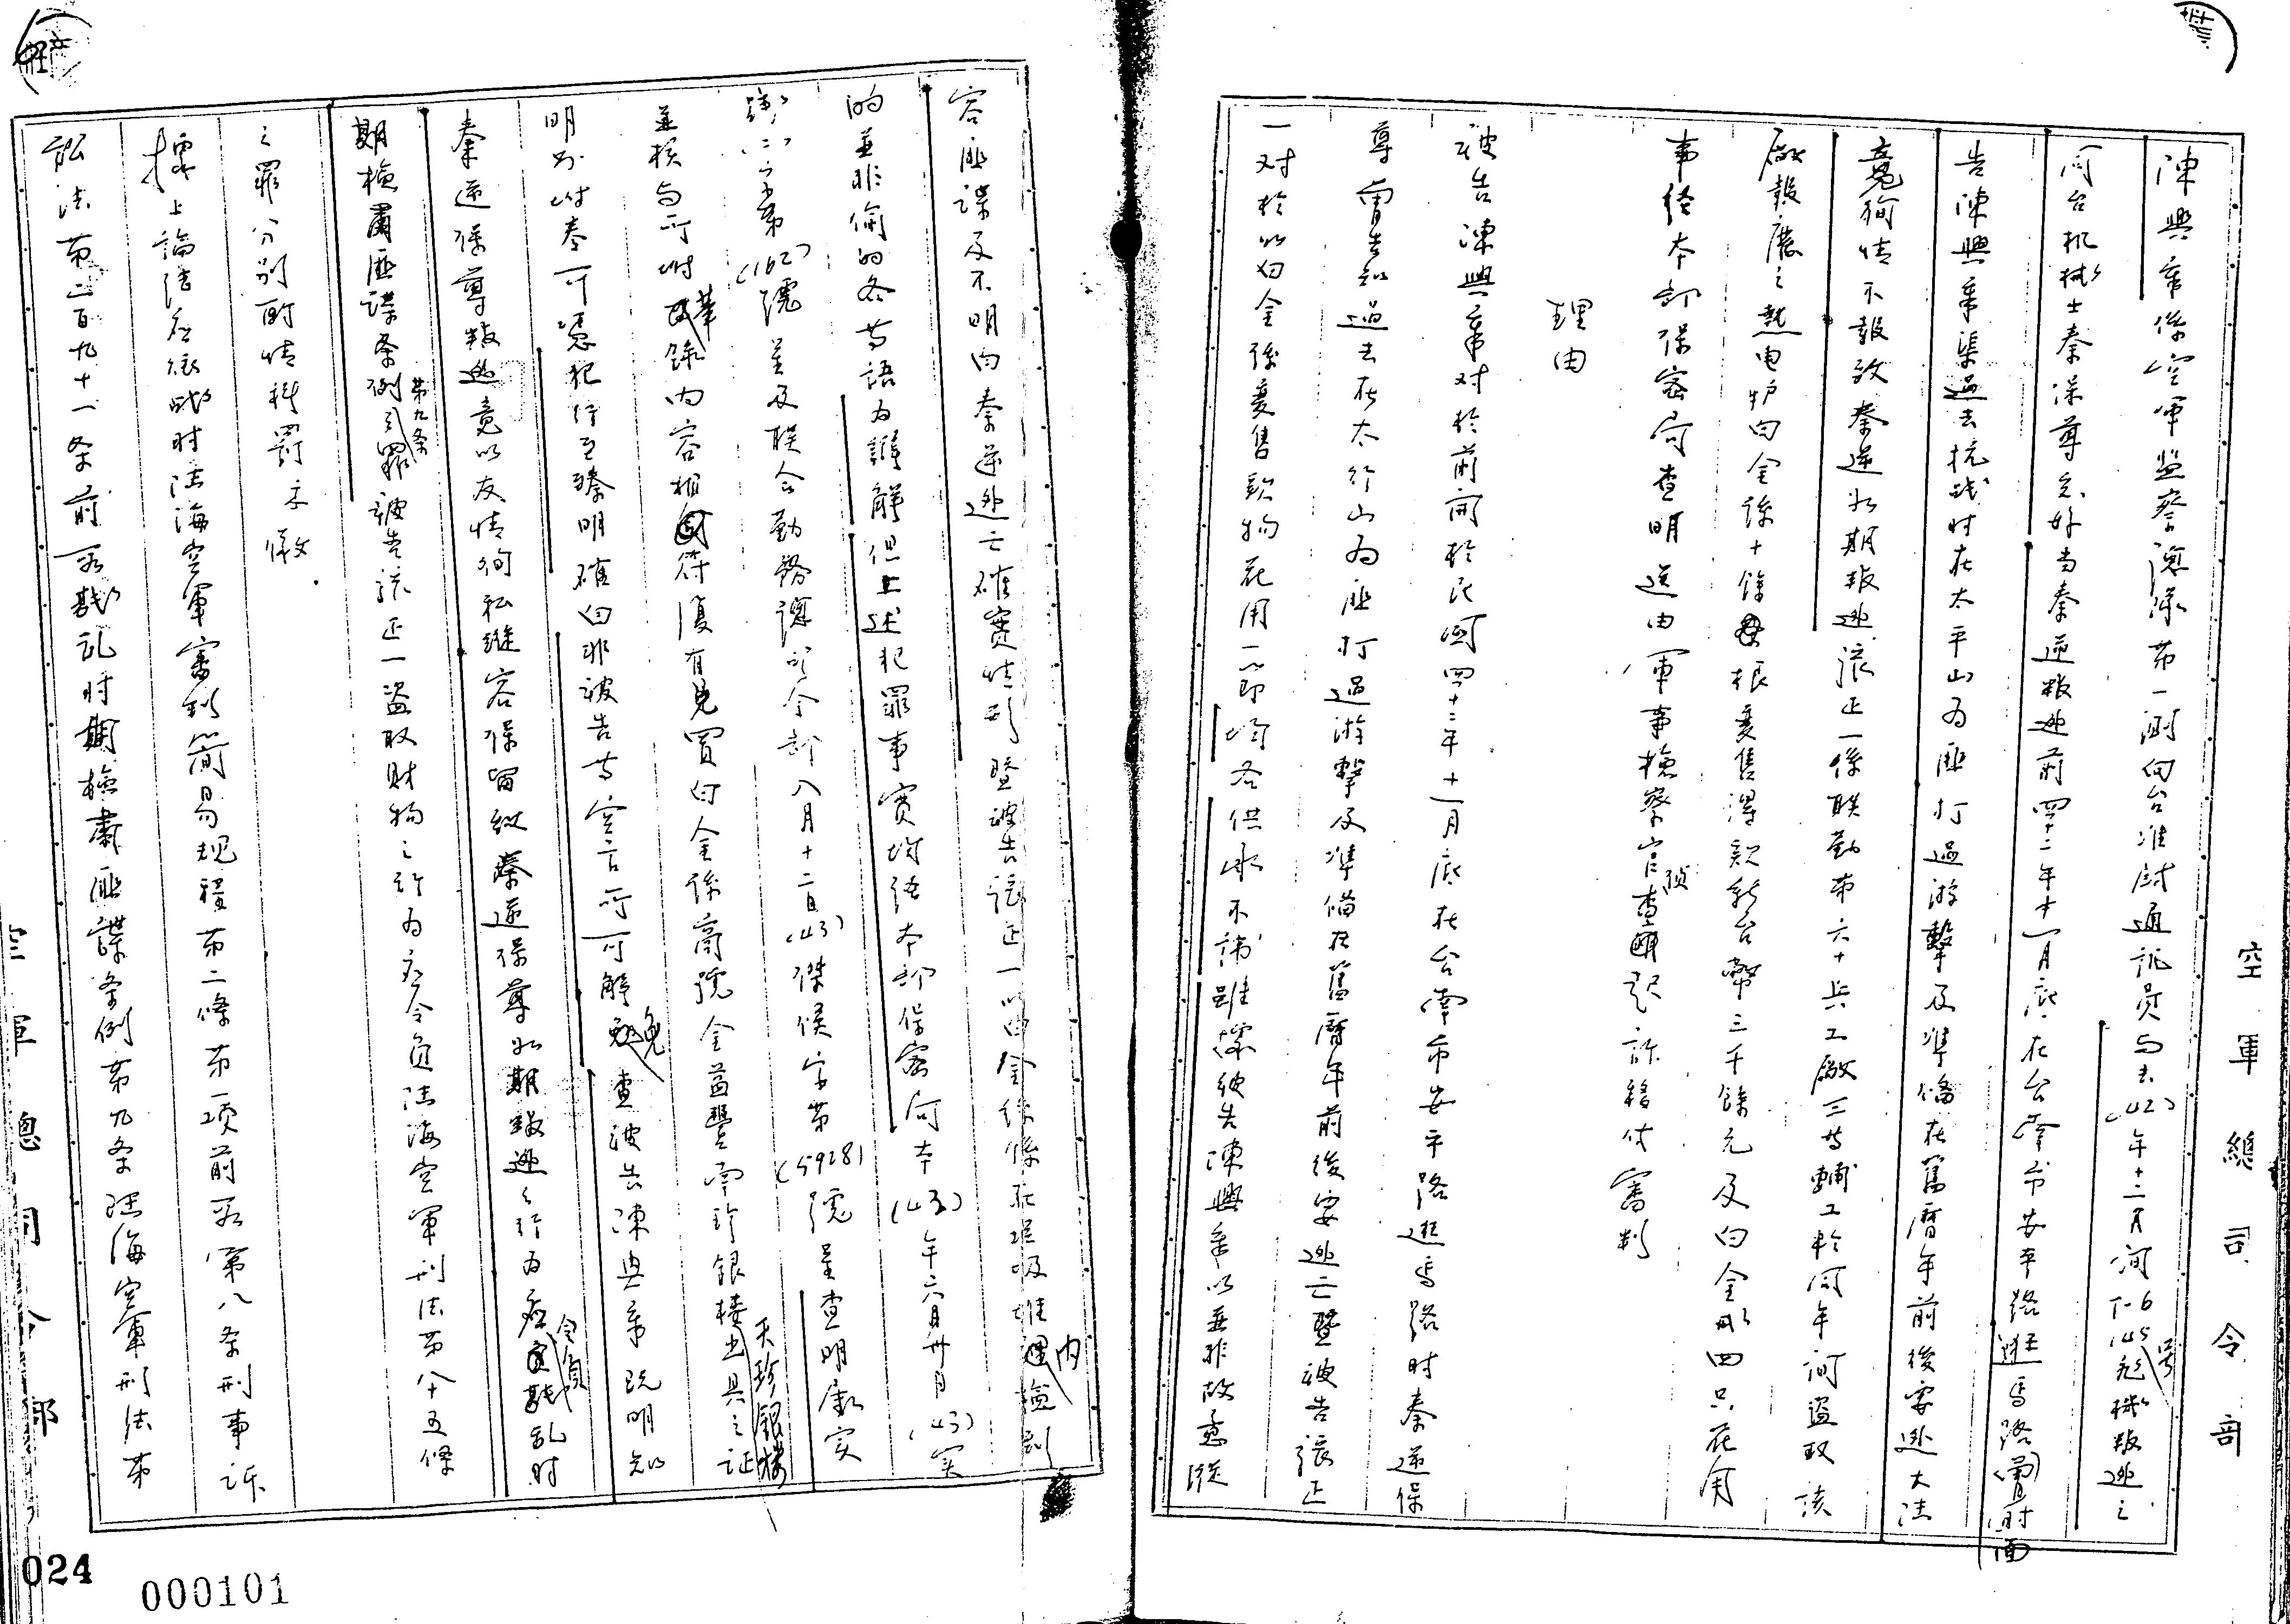 陳興家係空軍監察總隊第一測向台准尉通訊員與去(42)年十二月間T-6(45號)機叛逃之
同台机械士秦保尊友好當秦逆叛逃前四十二年十一月底在台南市安平路逛馬路時面
告陳興家渠過去抗战时在太平山為匪打過游擊及準備在舊曆年前後要逃大陆
竟徇情不報致秦逆如期叛逃張正一係聯勤第六十兵工廠三等輔工於同年間盜取該
廠報廢之熱电炉白金絲十餘根變售得款新台幣三千餘元及白金 四只花用
事経本部保密局查明送由軍事檢察官偵查起訴移付審判
理由
被告陳興家对於前開於民国四十二年十一月底在台南市安平路逛馬路时秦逆保
尊曾告知過去在太行山為匪打過游擊及準備在舊曆年前後要逃亡暨被告張正
一对於以白金絲變售款物花用一節均各供承不諱雖據被告陳興家以並非故意縱
容匪諜及不明內秦逆逃亡確實情形暨被告張正一以白金絲係在垃圾堆內撿到
的並非偷的各等語為辯解但上述犯罪事實均経本部保密局本(43)年六月卅日(43)实
字第(162)號呈及联合勤務總司令部八月十二日(43)傑候字第(5928)號呈查明屬实
並核与所附筆錄內容相符復有見買白金絲商號金茜豐南珍銀楼天珍銀楼出具之証
明各附卷可憑犯行至臻明確自非被告等空言所可解免查被告陳興家既明知
秦逆保尊叛逃竟以友情徇私縱容保留致秦逆保尊如期叛逃之行為應令負戡乱时
期檢肅匪諜条例第九条之罪被告張正一盜取財物之行為应令負陆海空軍刑法第八十五條
之罪分別酌情科罰示儆.
據上論结应依战时陆海空軍審判簡易規程第二條第一项前段第八条刑事訴
訟法第二百九十一条前段戡乱时期檢肅匪諜条例第九条陆海空軍刑法第
空軍總司令部
空軍總司令部
024
000101